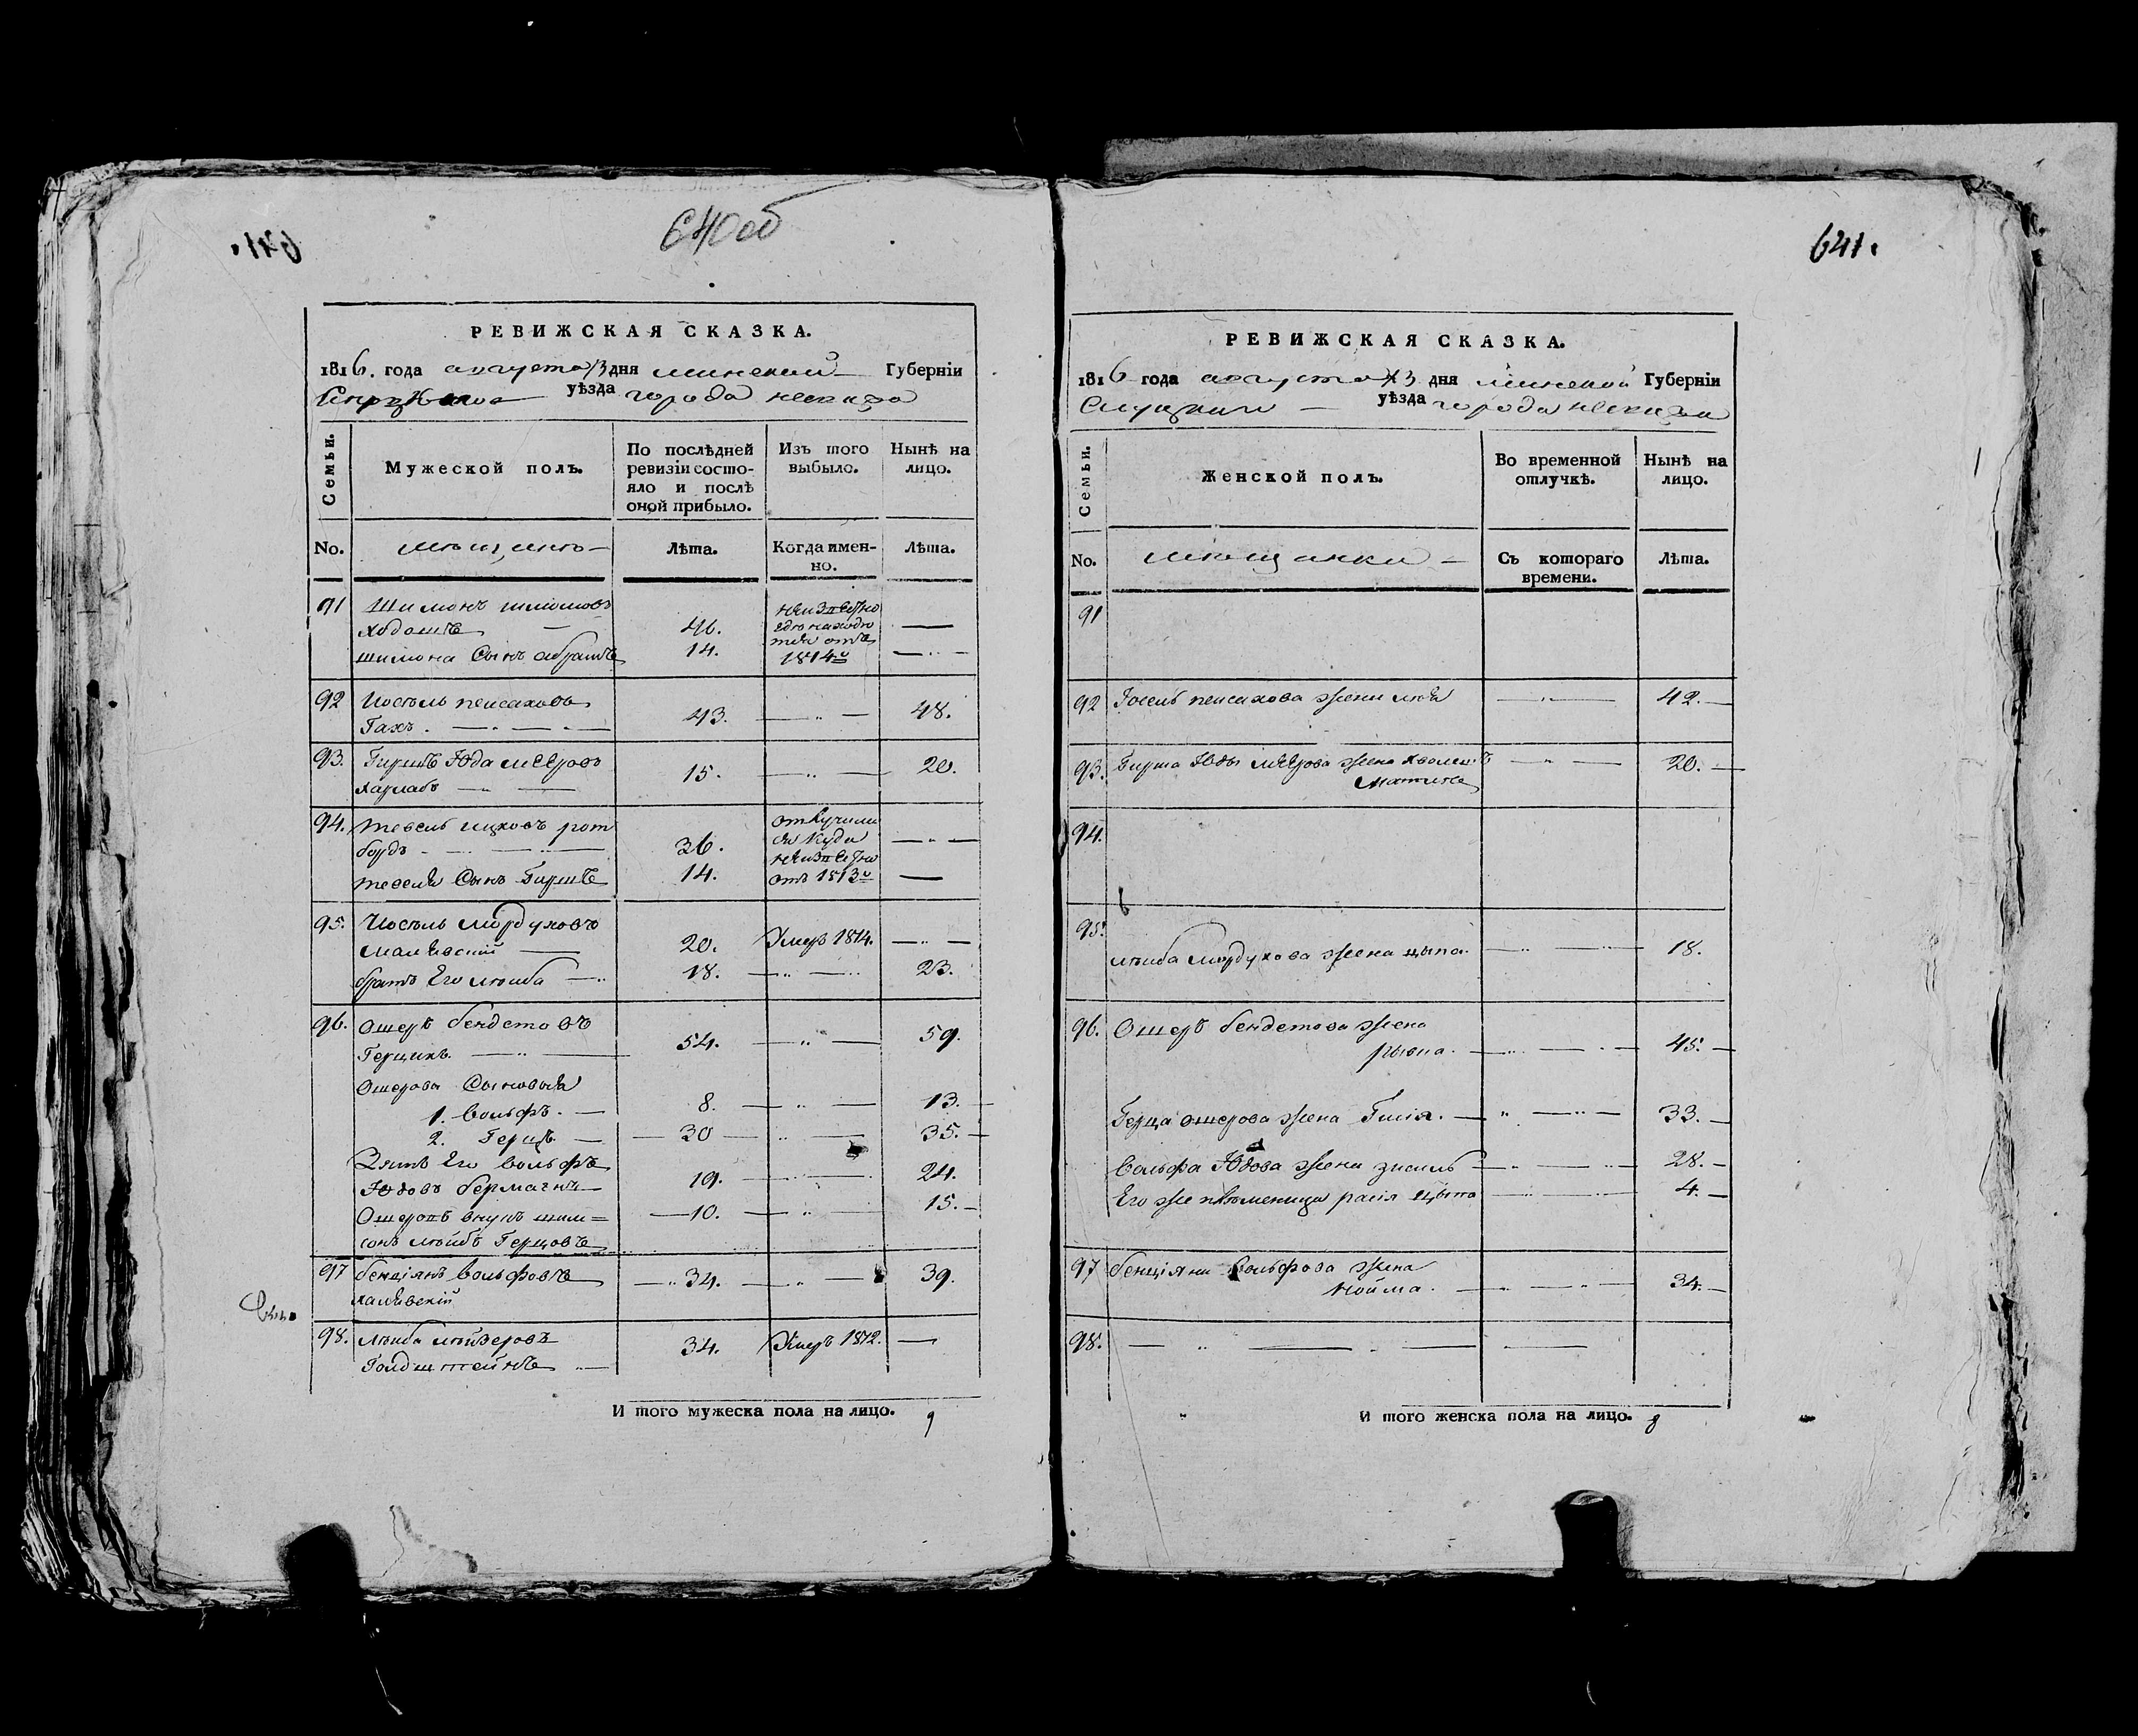 641.
640об
РЕВИЖСКАЯ СКАЗКА.
1816. года августа 13 дня минской Губерніи
уѣзда города несвижа
Семьи.
Мужеской полъ.
По послѣдней ревизіи состояло и послѣ оной прибыло.
Изъ того выбыло.
Нынѣ на лицо.
No.
мѣщане
Лѣта.
Когда именно.
Лѣта.
91 Шимонъ шломовъ
Ходошъ 46.
шимона Сынъ абрамъ 14.
неизвестно
где находи
тся отъ
1814го
92 Іосель пейсаховъ
Гахъ. 43. 48.
93. Гиршъ Юда мееровъ 15. 20.
Харлабъ
94. тевель ицковъ рот
бордъ 36.
тевеля Сынъ Гиршъ 14.
отлучили
ся куда
неизвестно
отъ 1813го
95. Іосель мордуховъ
Малевскій 20. Умеръ 1814.
братъ Его лейба 18. 23.
96. Ошеръ бендетовъ
Герцикъ. 54. 59.
Ошерова Сыновья
1. Вольфъ. 8. 13.
2. Герцъ. 30 35.
Зять Его вольфъ
Юдовъ берманъ 19. 24.
Ошеровъ внукъ шим=
сонъ лейбъ Герцовъ 10. 15.
97 бенціянъ вольфовъ 34. 39.
Халевскій
98. Лейба лейзеровъ
Голдштейнъ 34. Умеръ 1812.
И того мужеска пола на лицо. 9
641.
РЕВИЖСКАЯ СКАЗКА.
1816 года августа 13 дня минской Губерніи
Слуцкаго уѣзда города несвижа
Семьи.
Женской полъ.
Во временной отлучкѣ.
Нынѣ на лицо.
No.
мѣщанки
Съ котораго времени.
Лѣта.
91
92 Іосель пейсахова жена лея 42.
93. Гирша Юды меерова жена 20.
94.
95. лейба мордухова жена цыпа. 18.
96. Ошеръ бендетова жена
рывка. 45.
Герца ошерова жена Гися. 33.
Вольфа Юдова жена зисель 28.
Его же племеница рася цыпа 4.
97 бенціяна Вольфова жена
нойма. 34.
98.
И того женска пола на лицо. 8